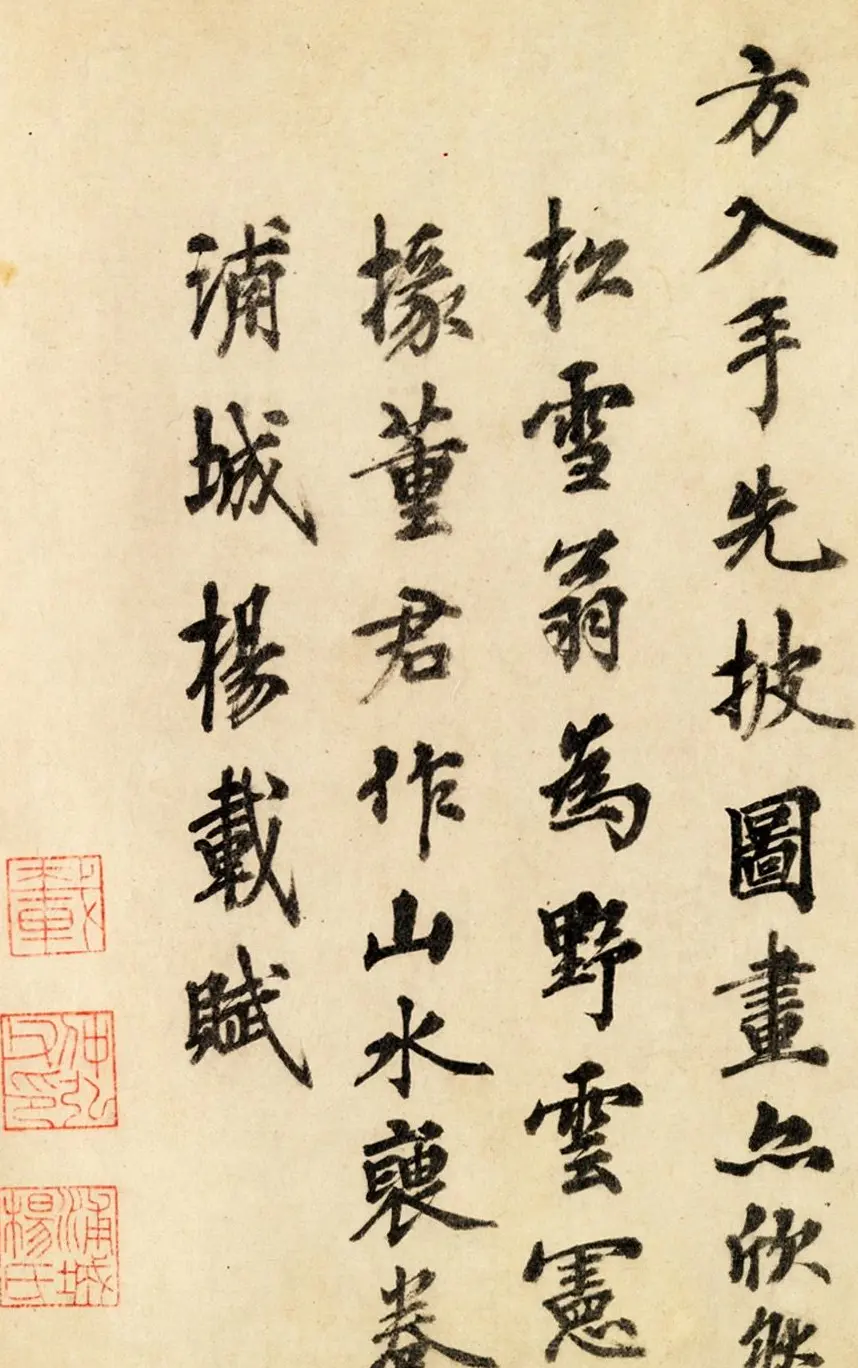 方入手先披圖畫亦欣然
松雪翁為野雲憲
掾董君作山水卷
浦城楊載賦
載
仲弘父印
浦城楊氏